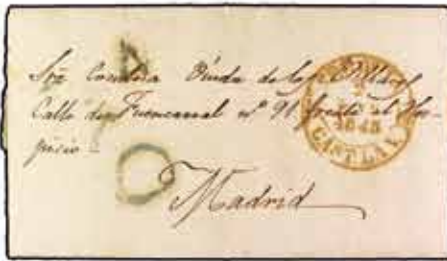 Sra Condesa Viuda de
Calle de Fuencarral nº 91 frente al Hos-
picio -
Madrid
2
1845
CAST. LA V.